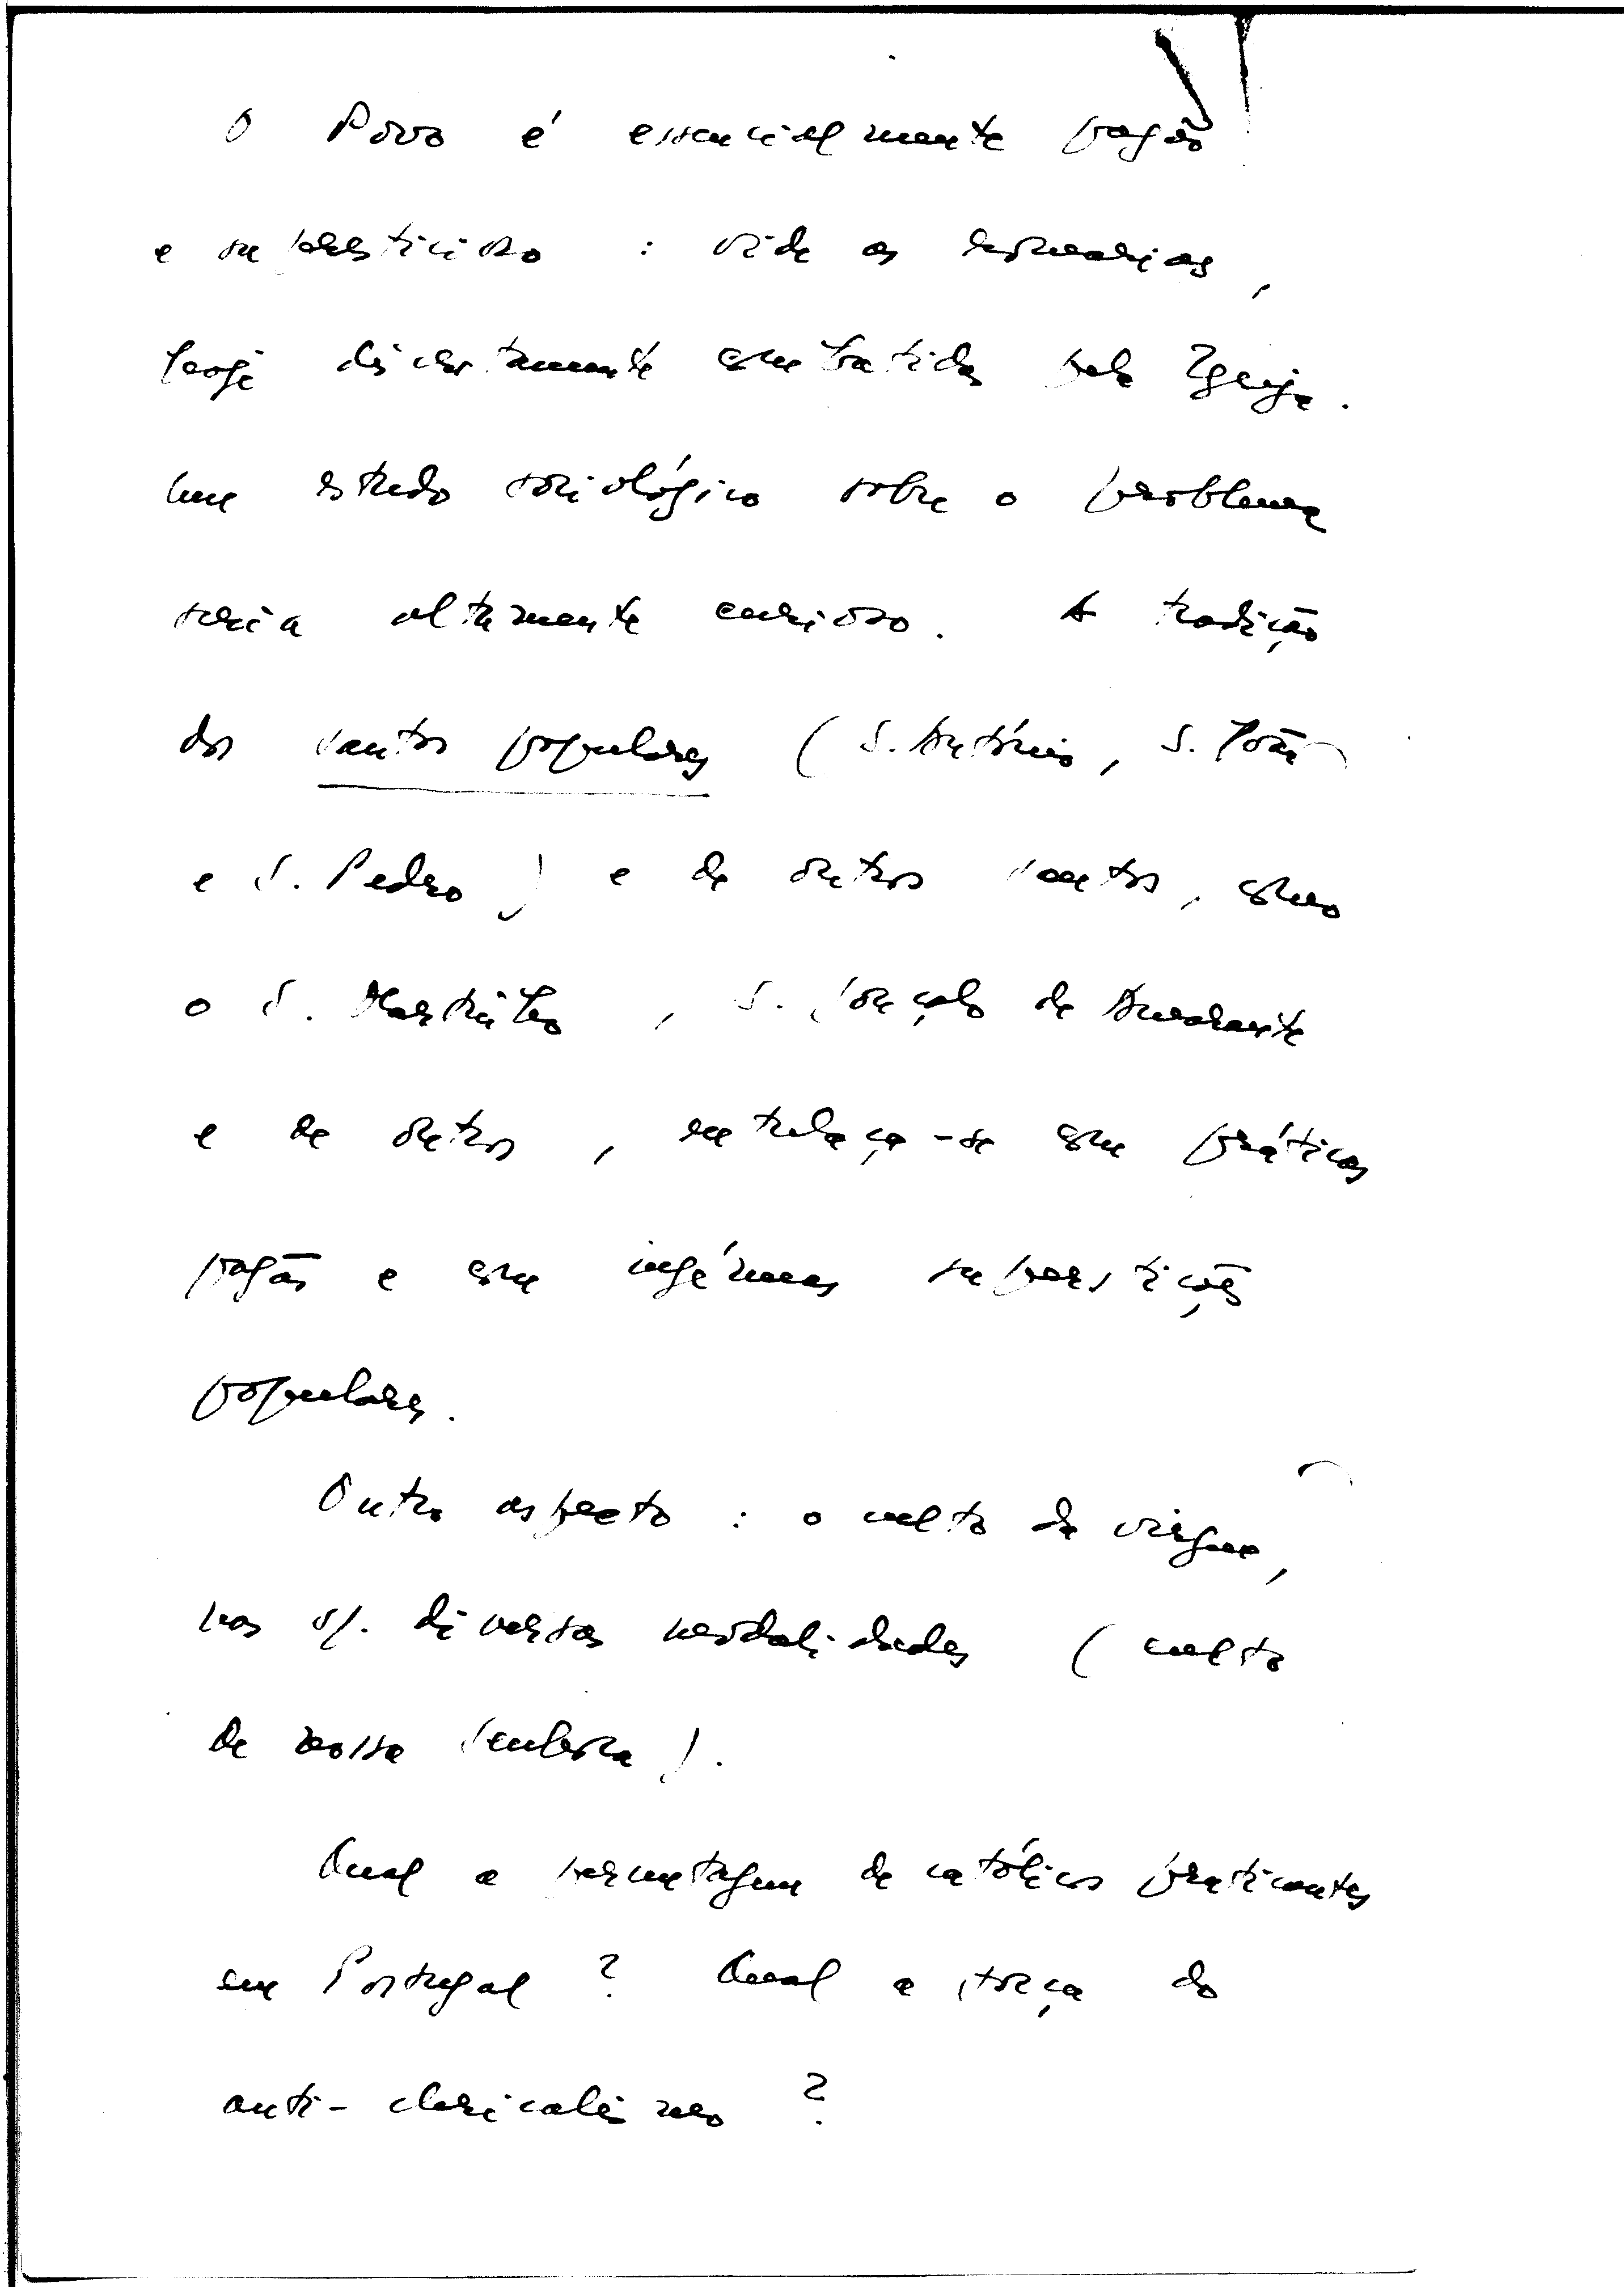 O Povo é essencialmente pagão
e supersticioso : vide as romarias,
hoje discretamente combatidas pela Igreja.
Um estudo sociológico sobre o problema
seria altamente curioso. A tradição
dos santos populares (S. António, S. João
e S. Pedro) e de outros santos, como
o S. Martinho, S. Gonçalo de Amarante
e de outros, entrelaça-se com práticas
pagãs e com ingénuas superstições
populares.
Outro aspecto : o culto da virgem,
nas s/. diversas modalidades (culto
de nossa Senhora).
Qual a percentagem de católicos praticantes
em Portugal ? Qual a força do
anti-clericalismo ?